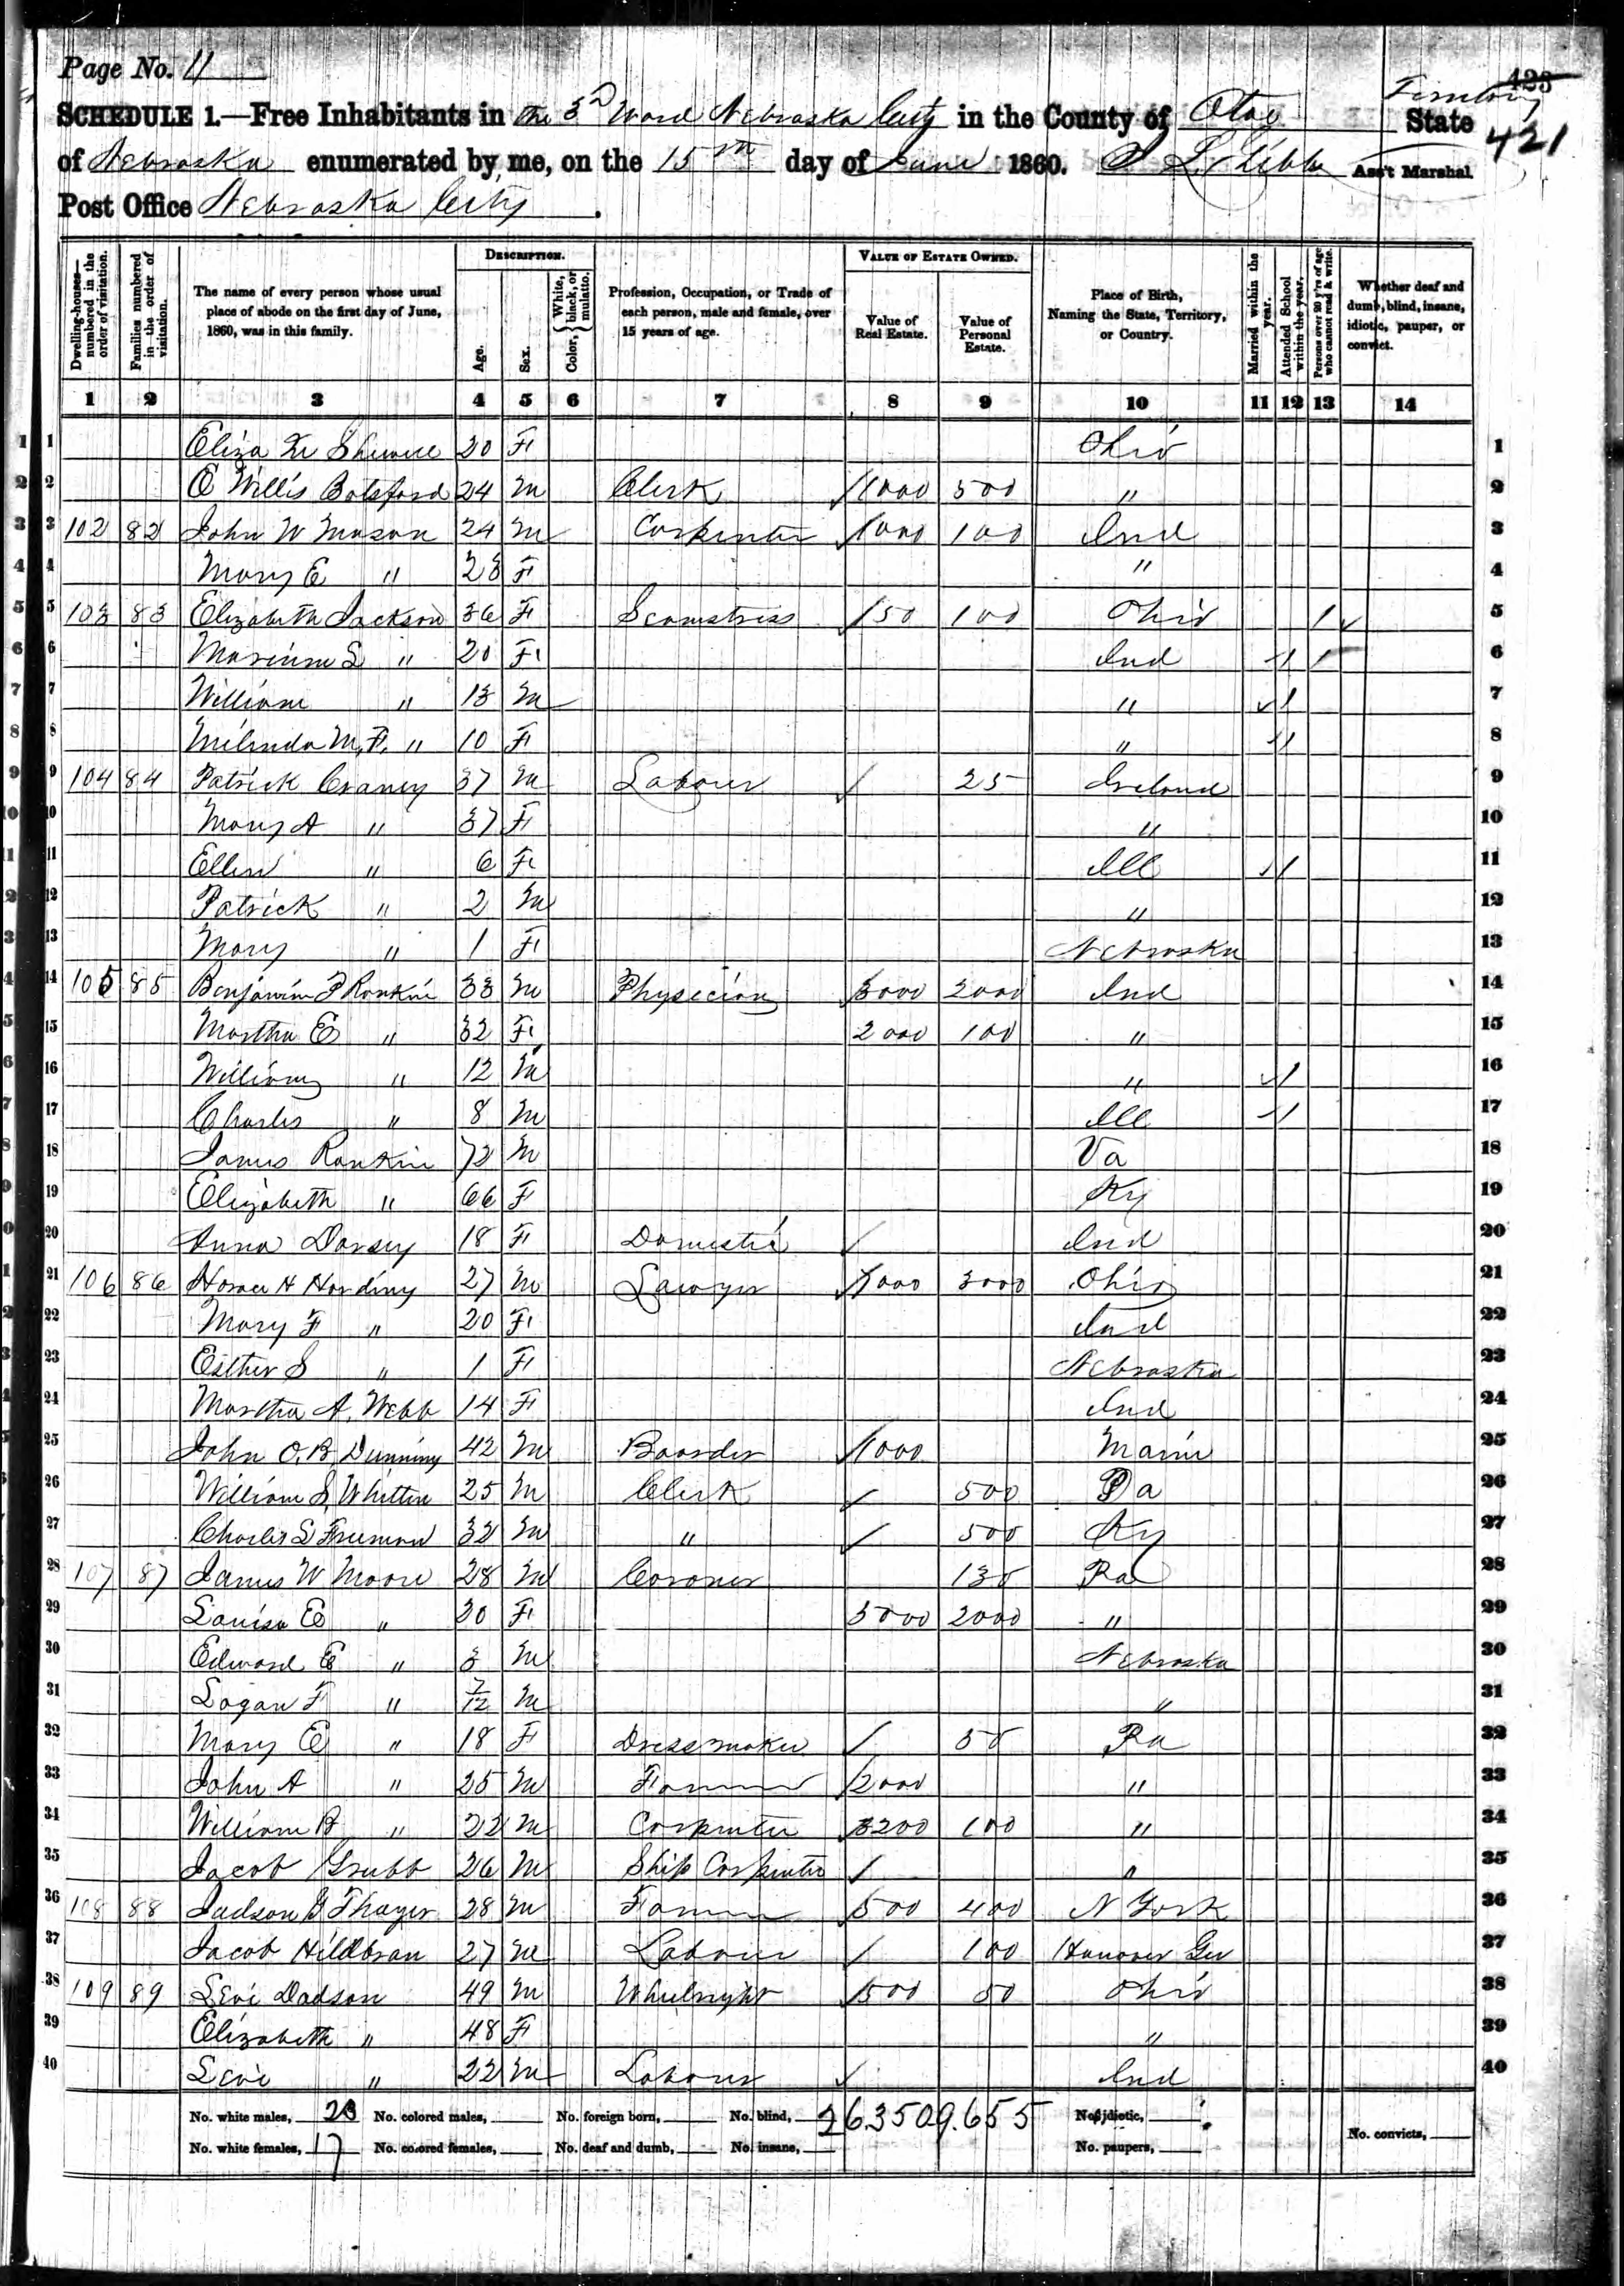 Page No. 11
423
SCHEDULE 1.—Free Inhabitants in the 3rd Ward Nebraska City in the County of Otoe Territory State
421
of Nebraska enumerated by me, on the 15th day of June 1860. Ass't Marshal.
Post Office Nebraska City.
Dwelling-houses—numbered in the order of visitation.
Families numbered in the order of visitation.
The name of every person whose usual place of abode on the first day of June, 1860, was in this family.
DESCRIPTION.
Age.
Sex.
Color, White, black, or mulatto.
Profession, Occupation, or Trade of each person, male and female, over 15 years of age.
VALUE OF ESTATE OWNED.
Value of Real Estate.
Value of Personal Estate.
Place of Birth, Naming the State, Territory, or Country.
Married within the year.
Attended School within the year.
Persons over 20 y'rs of age who cannot read & write.
Whether deaf and dumb, blind, insane, idiotic, pauper, or convict.
1 2 3 4 5 6 7 8 9 10 11 12 13 14
1 Eliza 20 F Ohio 1
2 E Willis Botsford 24 m Clerk 1000 500 " 2
3 102 82 John W Mason 24 m Carpenter 1000 100 Ind 3
4 Mary E " 23 F " 4
5 103 83 Elizabeth Jackson 36 F Seamstress 150 100 Ohio 1 5
6 S " 20 F Ind 1 1 6
7 William " 13 m " 1 7
8 Milinda M. F. " 10 F " 1 8
9 104 84 Patrick Craney 37 m Labour 25 Ireland 9
10 Mary A " 37 F " 10
11 Ellen " 6 F Ill 1 11
12 Patrick " 2 m " 12
13 Mary " 1 F Nebraska 13
14 105 85 Benjamin F Rankin 33 m Physician 3000 2000 Ind 14
15 Martha E " 32 F 2000 100 " 15
16 William " 12 m " 1 16
17 Charles " 8 m Ill 1 17
18 James Rankin 72 m Va 18
19 Elizabeth " 66 F Ky 19
20 Anna Dorsey 18 F Domestic Ind 20
21 106 86 Horace H Harding 27 m Lawyer 000 3000 Ohio 21
22 Mary F " 20 F Ind 22
23 Esther S " 1 F Nebraska 23
24 Martha A. Webb 14 F Ind 24
25 John O. B. Dunning 42 m Boarder 1000 Main 25
26 William S. Whitten 25 m Clerk 500 Pa 26
27 Charles S Freeman 32 m " 500 Ky 27
28 107 87 James W Moore 28 m Coroner 130 Pa 28
29 Louisa E " 20 F 3000 2000 " 29
30 Edward E " 3 m Nebraska 30
31 Logan F " 7/12 m " 31
32 Mary E " 18 F Dressmaker 50 Pa 32
33 John A " 25 m Farmer 2000 " 33
34 William B " 22 m Carpenter 3200 100 " 34
35 Jacob Grubb 26 m Ship Carpenter " 35
36 108 88 Judson G Thayer 28 m Farmer 500 400 N York 36
37 Jacob Hildbran 27 m Labour 100 Hanover Ger 37
38 109 89 Levi Dodson 49 m Wheelright 500 50 Ohio 38
39 Elizabeth " 48 F " 39
40 Levi " 22 m Labour Ind 40
No. white males, 23 No. colored males, No. foreign born, No. blind, 26350 9.655 No. idiotic,
No. white females, 17 No. colored females, No. deaf and dumb, No. insane, No. paupers, No. convicts,